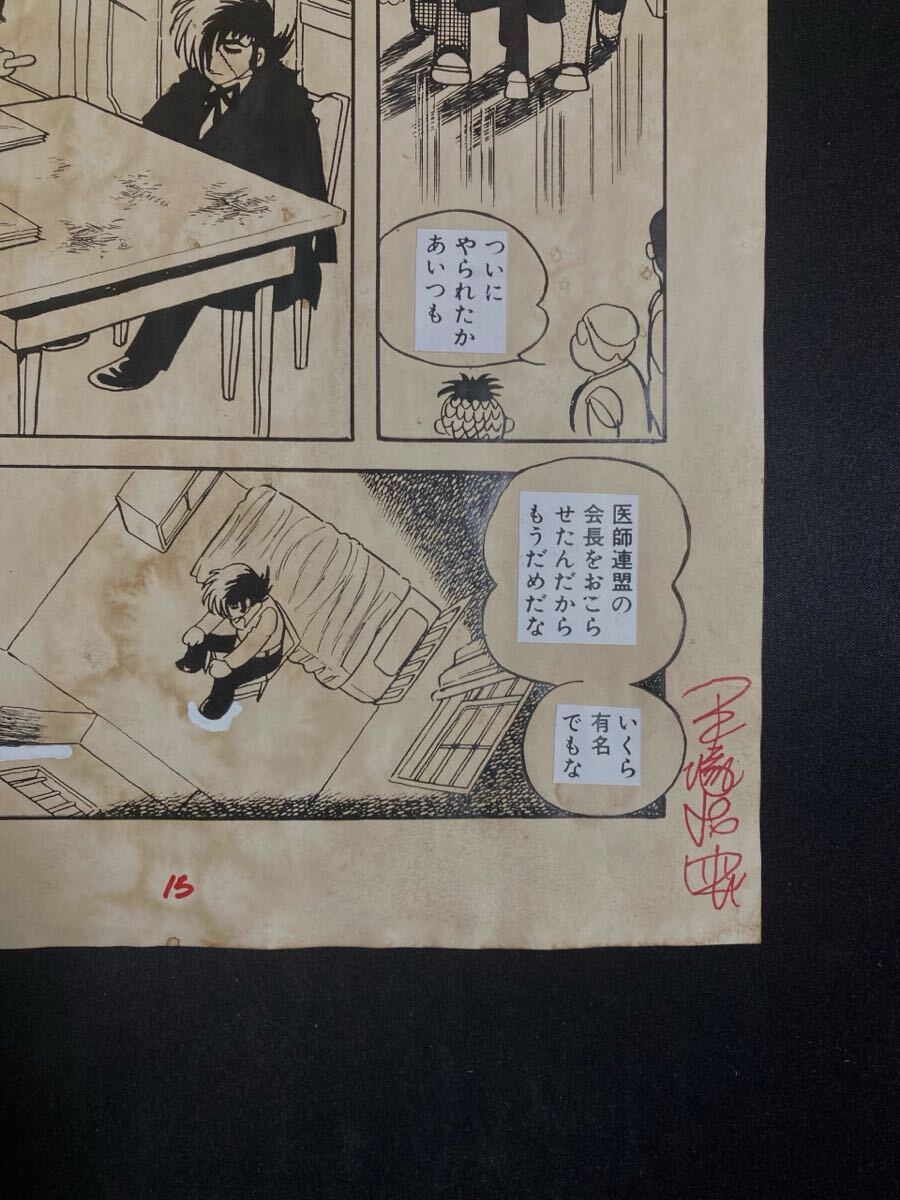 ついに
やられたか
あいつも
医師連盟の
会長をおこら
せたんだから
もうだめだな
いくら
有名
でもな
手塚治虫
15